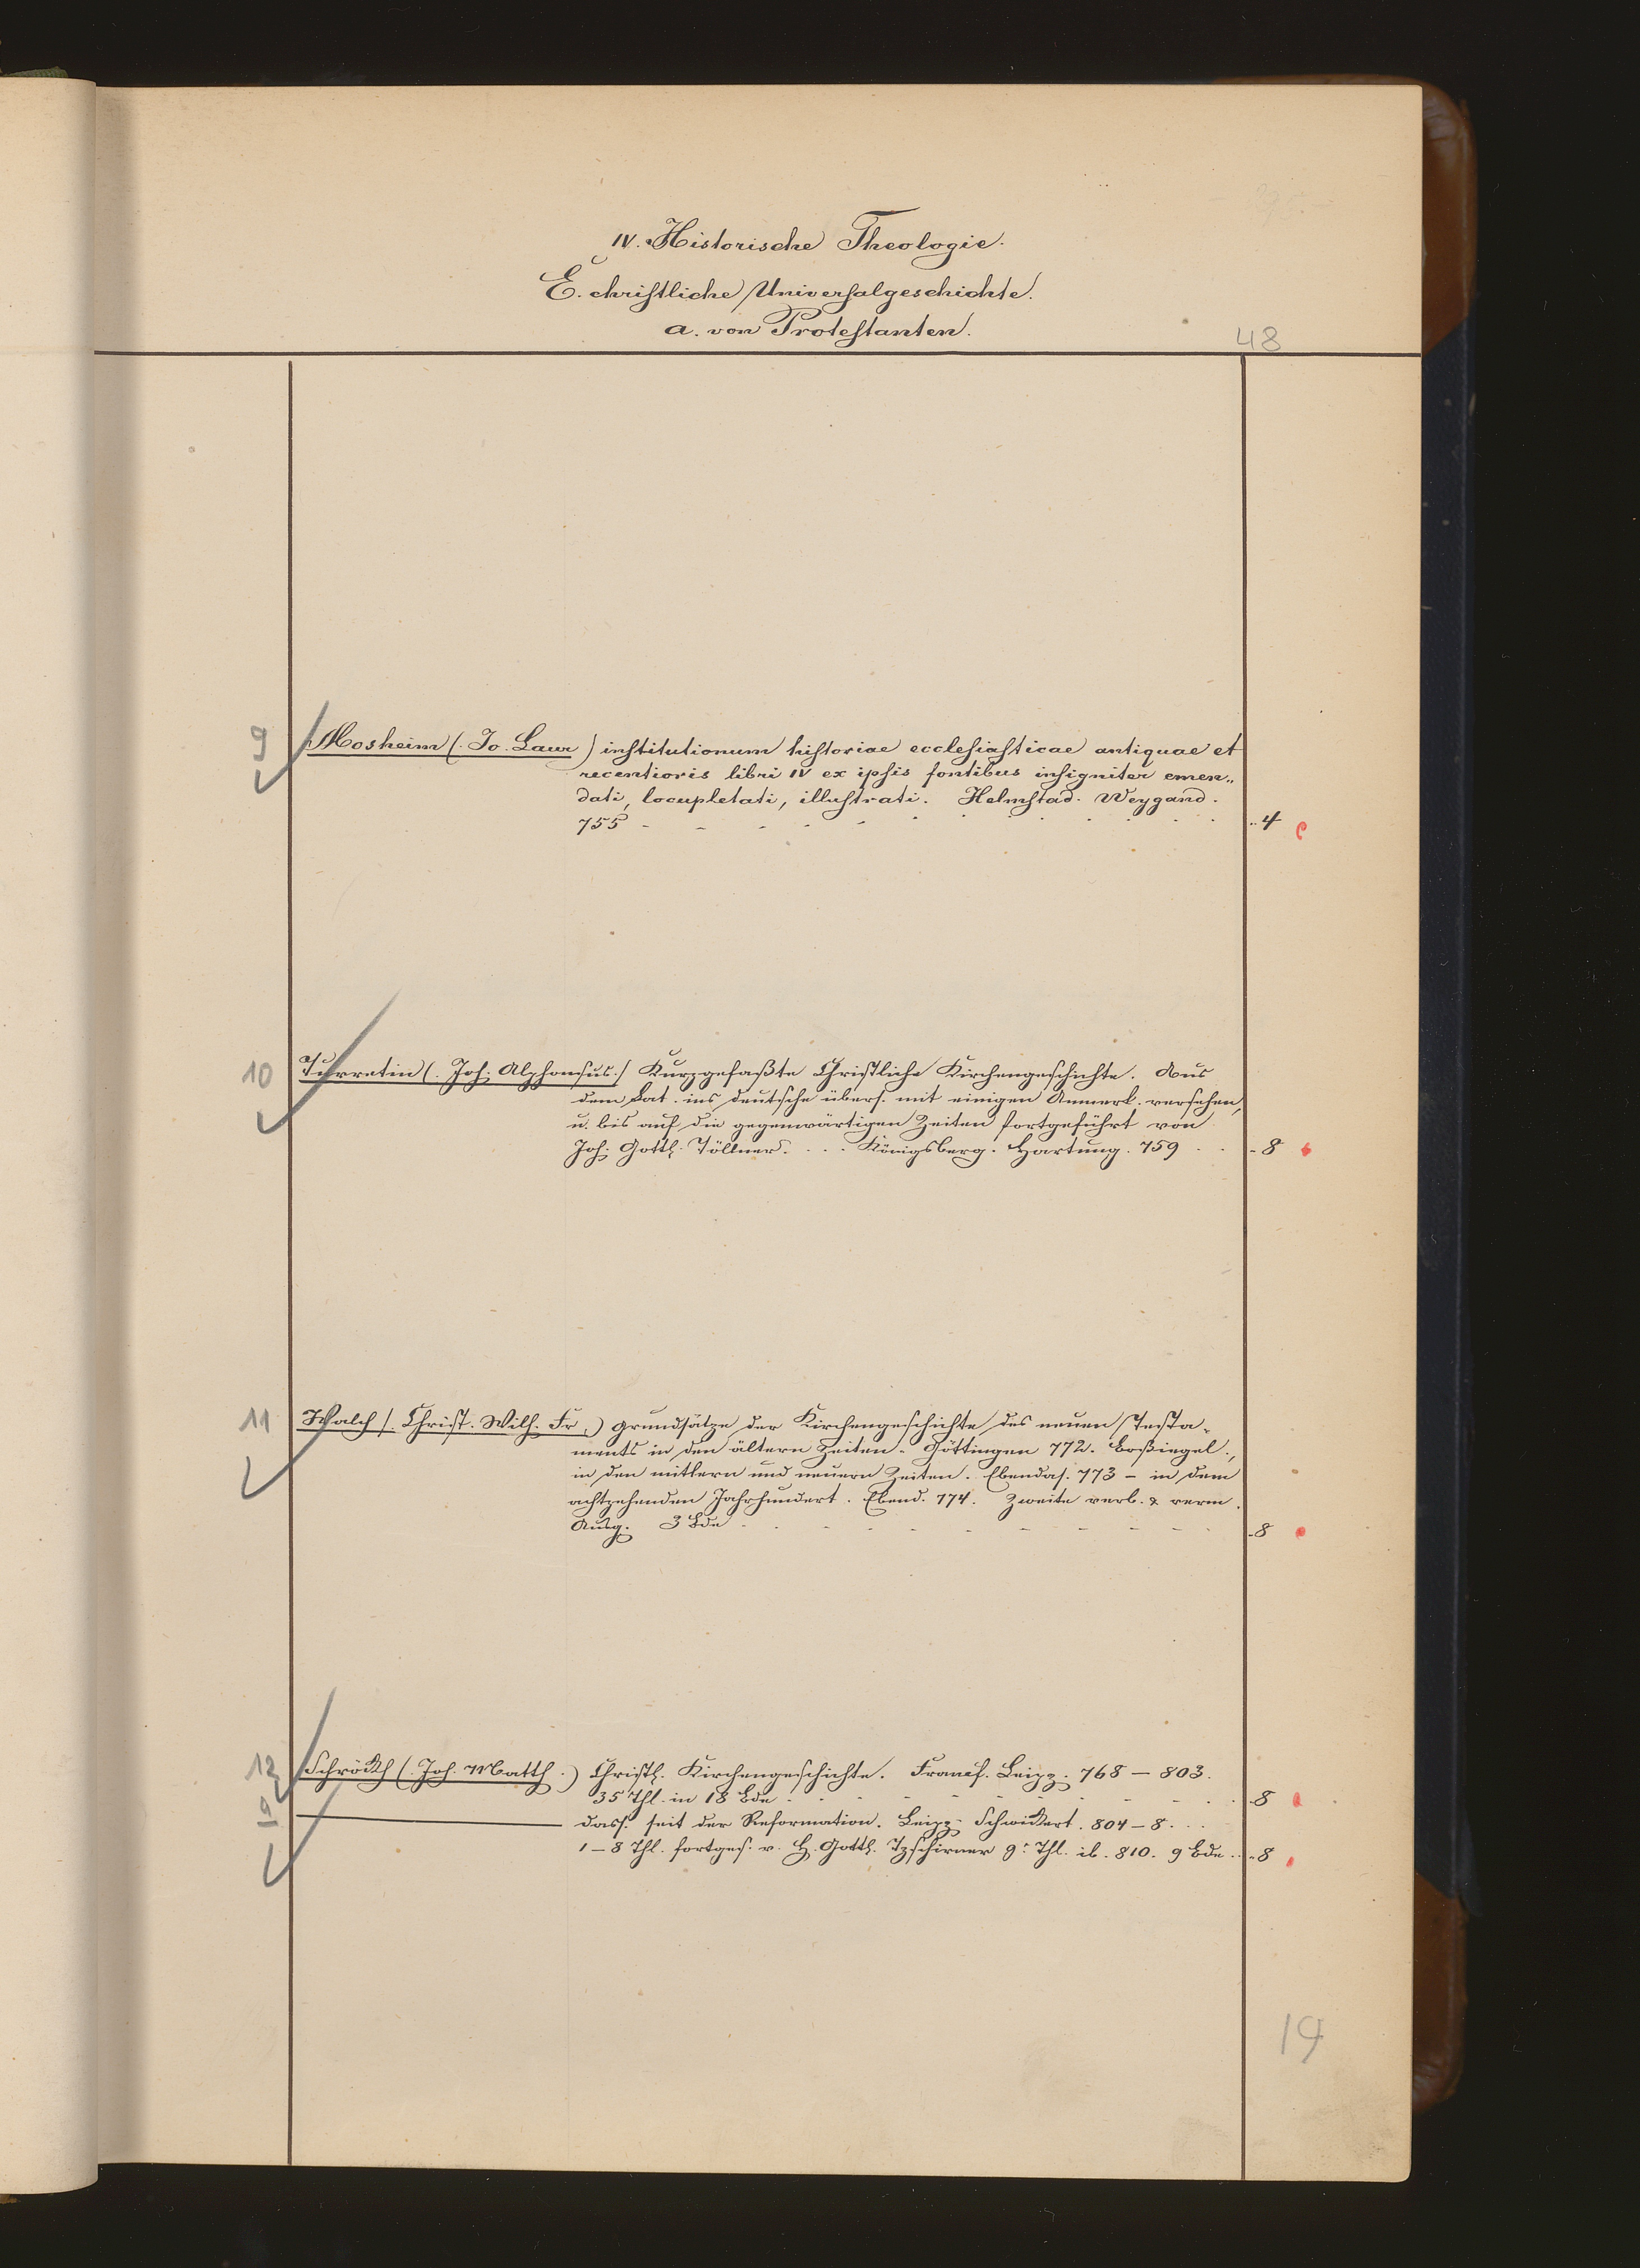 IV. Historische Theologie.
E. christliche Universalgeschichte.
a. von Protestanten.
48
9
Mosheim (. Jo. Laur ) institutionum historiae ecclesiasticae antiquae et
recentioris libri IV ex ipsis fontibus insigniter emen„
dati, locupletati, illustrati. Helmstad. Weygand.
755 - - - - - - - - - - - - .. 4
10
Turretin (. Joh. Alphonsus./ Kurzgefaßte Christliche Kirchengeschichte. Aus
dem Lat. ins deutsche übers. mit einigen Anmerk. versehen,
u. bis auf die gegenwärtigen Zeiten fortgeführt von
Joh. Gottl. Töllner. . . . Königsberg. Hartung. 759 . . - 8
11
Walch /. Christ. Wilh. Fr .) Grundsätze der Kirchengeschichte des neuen Testa-
ments in den ältern Zeiten. Göttingen 772. Boßiegel.,
in den mittlern und neuern Zeiten. Ebendas. 773 - in dem
achtzehenden Jahrhundert. Ebend. 774. Zweite verb. & verm.
Ausg. 3 Bde - - - - - - - - - - -8
12
Schröckh (. Joh. Matth .) Christl. Kirchengeschichte. Francf. Leipz. 768 — 803.
35 Thl. in 18 Bde . - - - - - - - - . . 8
—— dass. seit der Reformation. Leipz. Schwickert. 804 - 8. . .
1 — 8 Thl. fortges. v. H. Gottl. Tzschirner 9r Thl. ib. 810. 9 Bde . . - 8
19